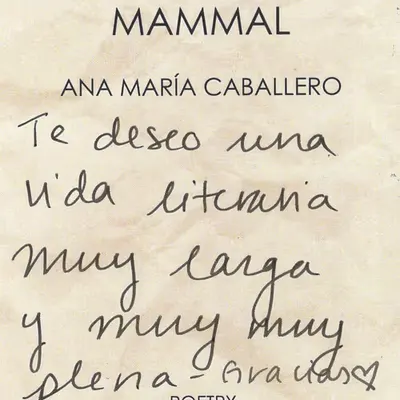 MAMMAL
ANA MARÍA CABALLERO
Te deseo una
vida literaria
muy larga
y muy muy
plena - Gracias♡
POETRY